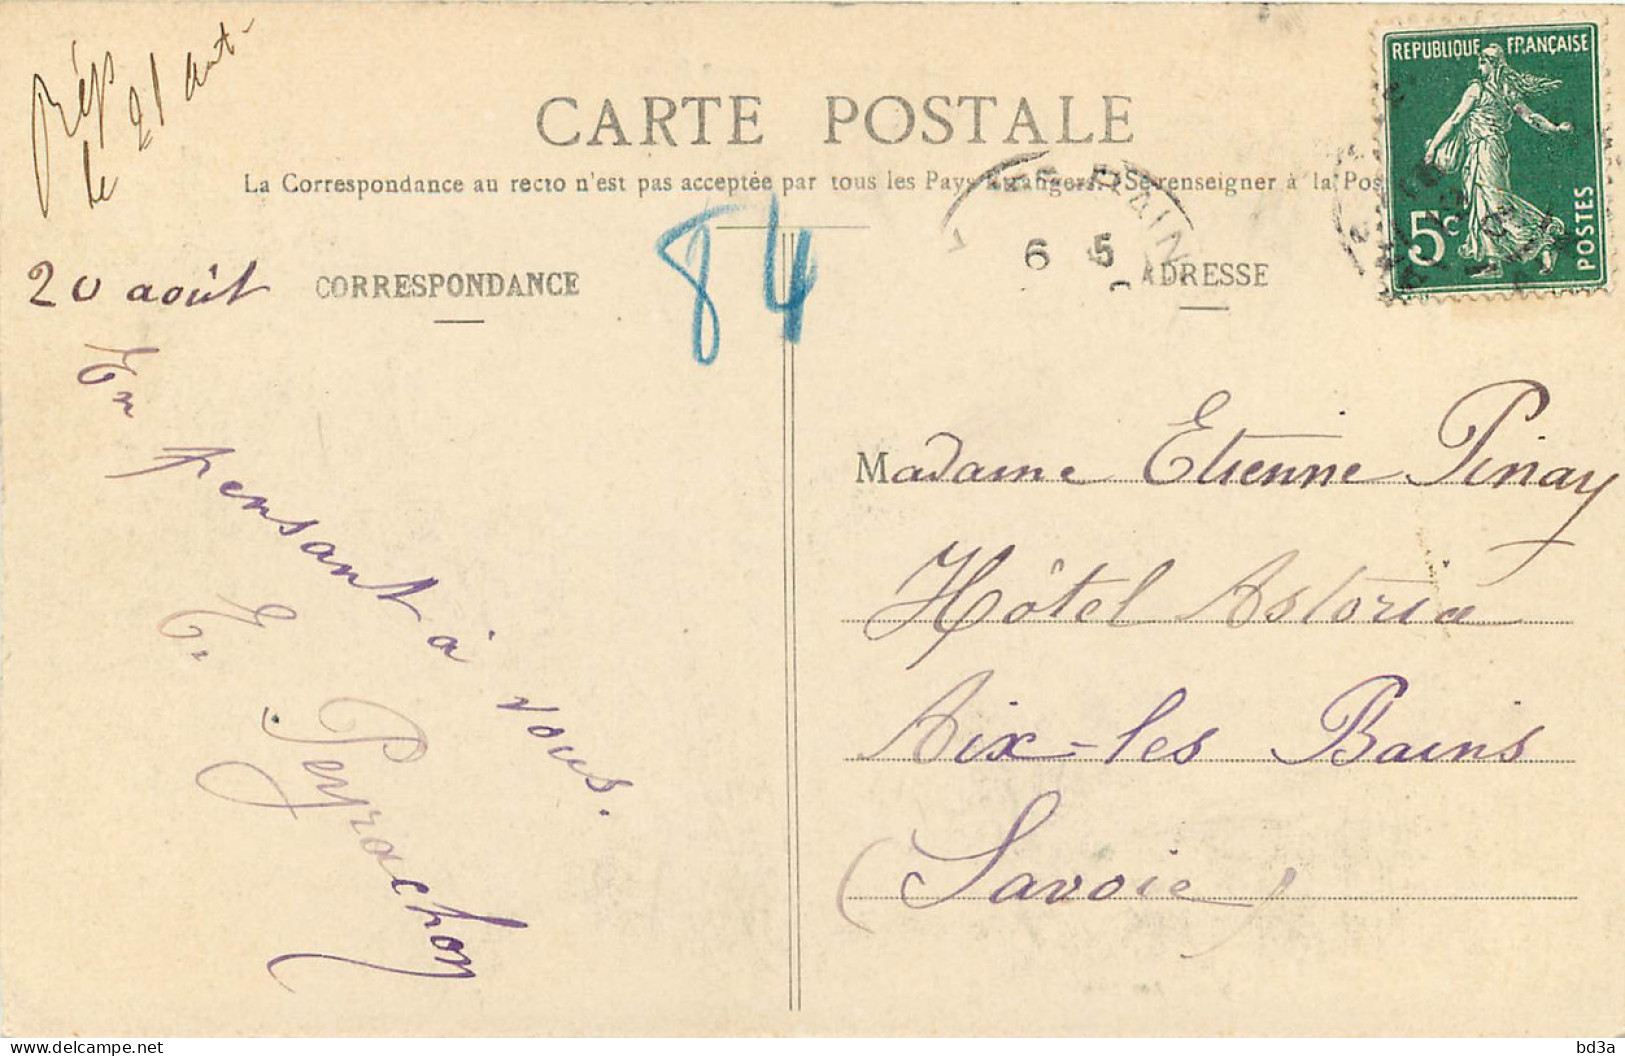 Rép
le 21 aout
REPUBLIQUE FRANÇAISE
5c
POSTES
CARTE POSTALE
La Correspondance au recto n'est pas acceptée par tous les Pays Etrangers. (Se renseigner à la Pos
84
6 5
20 août
CORRESPONDANCE
ADRESSE
En
pensant à vous.
E. Peyrachon
Madame Etienne Pinay
Hôtel Astoria
Aix-les Bains
(Savoie)
bd3a